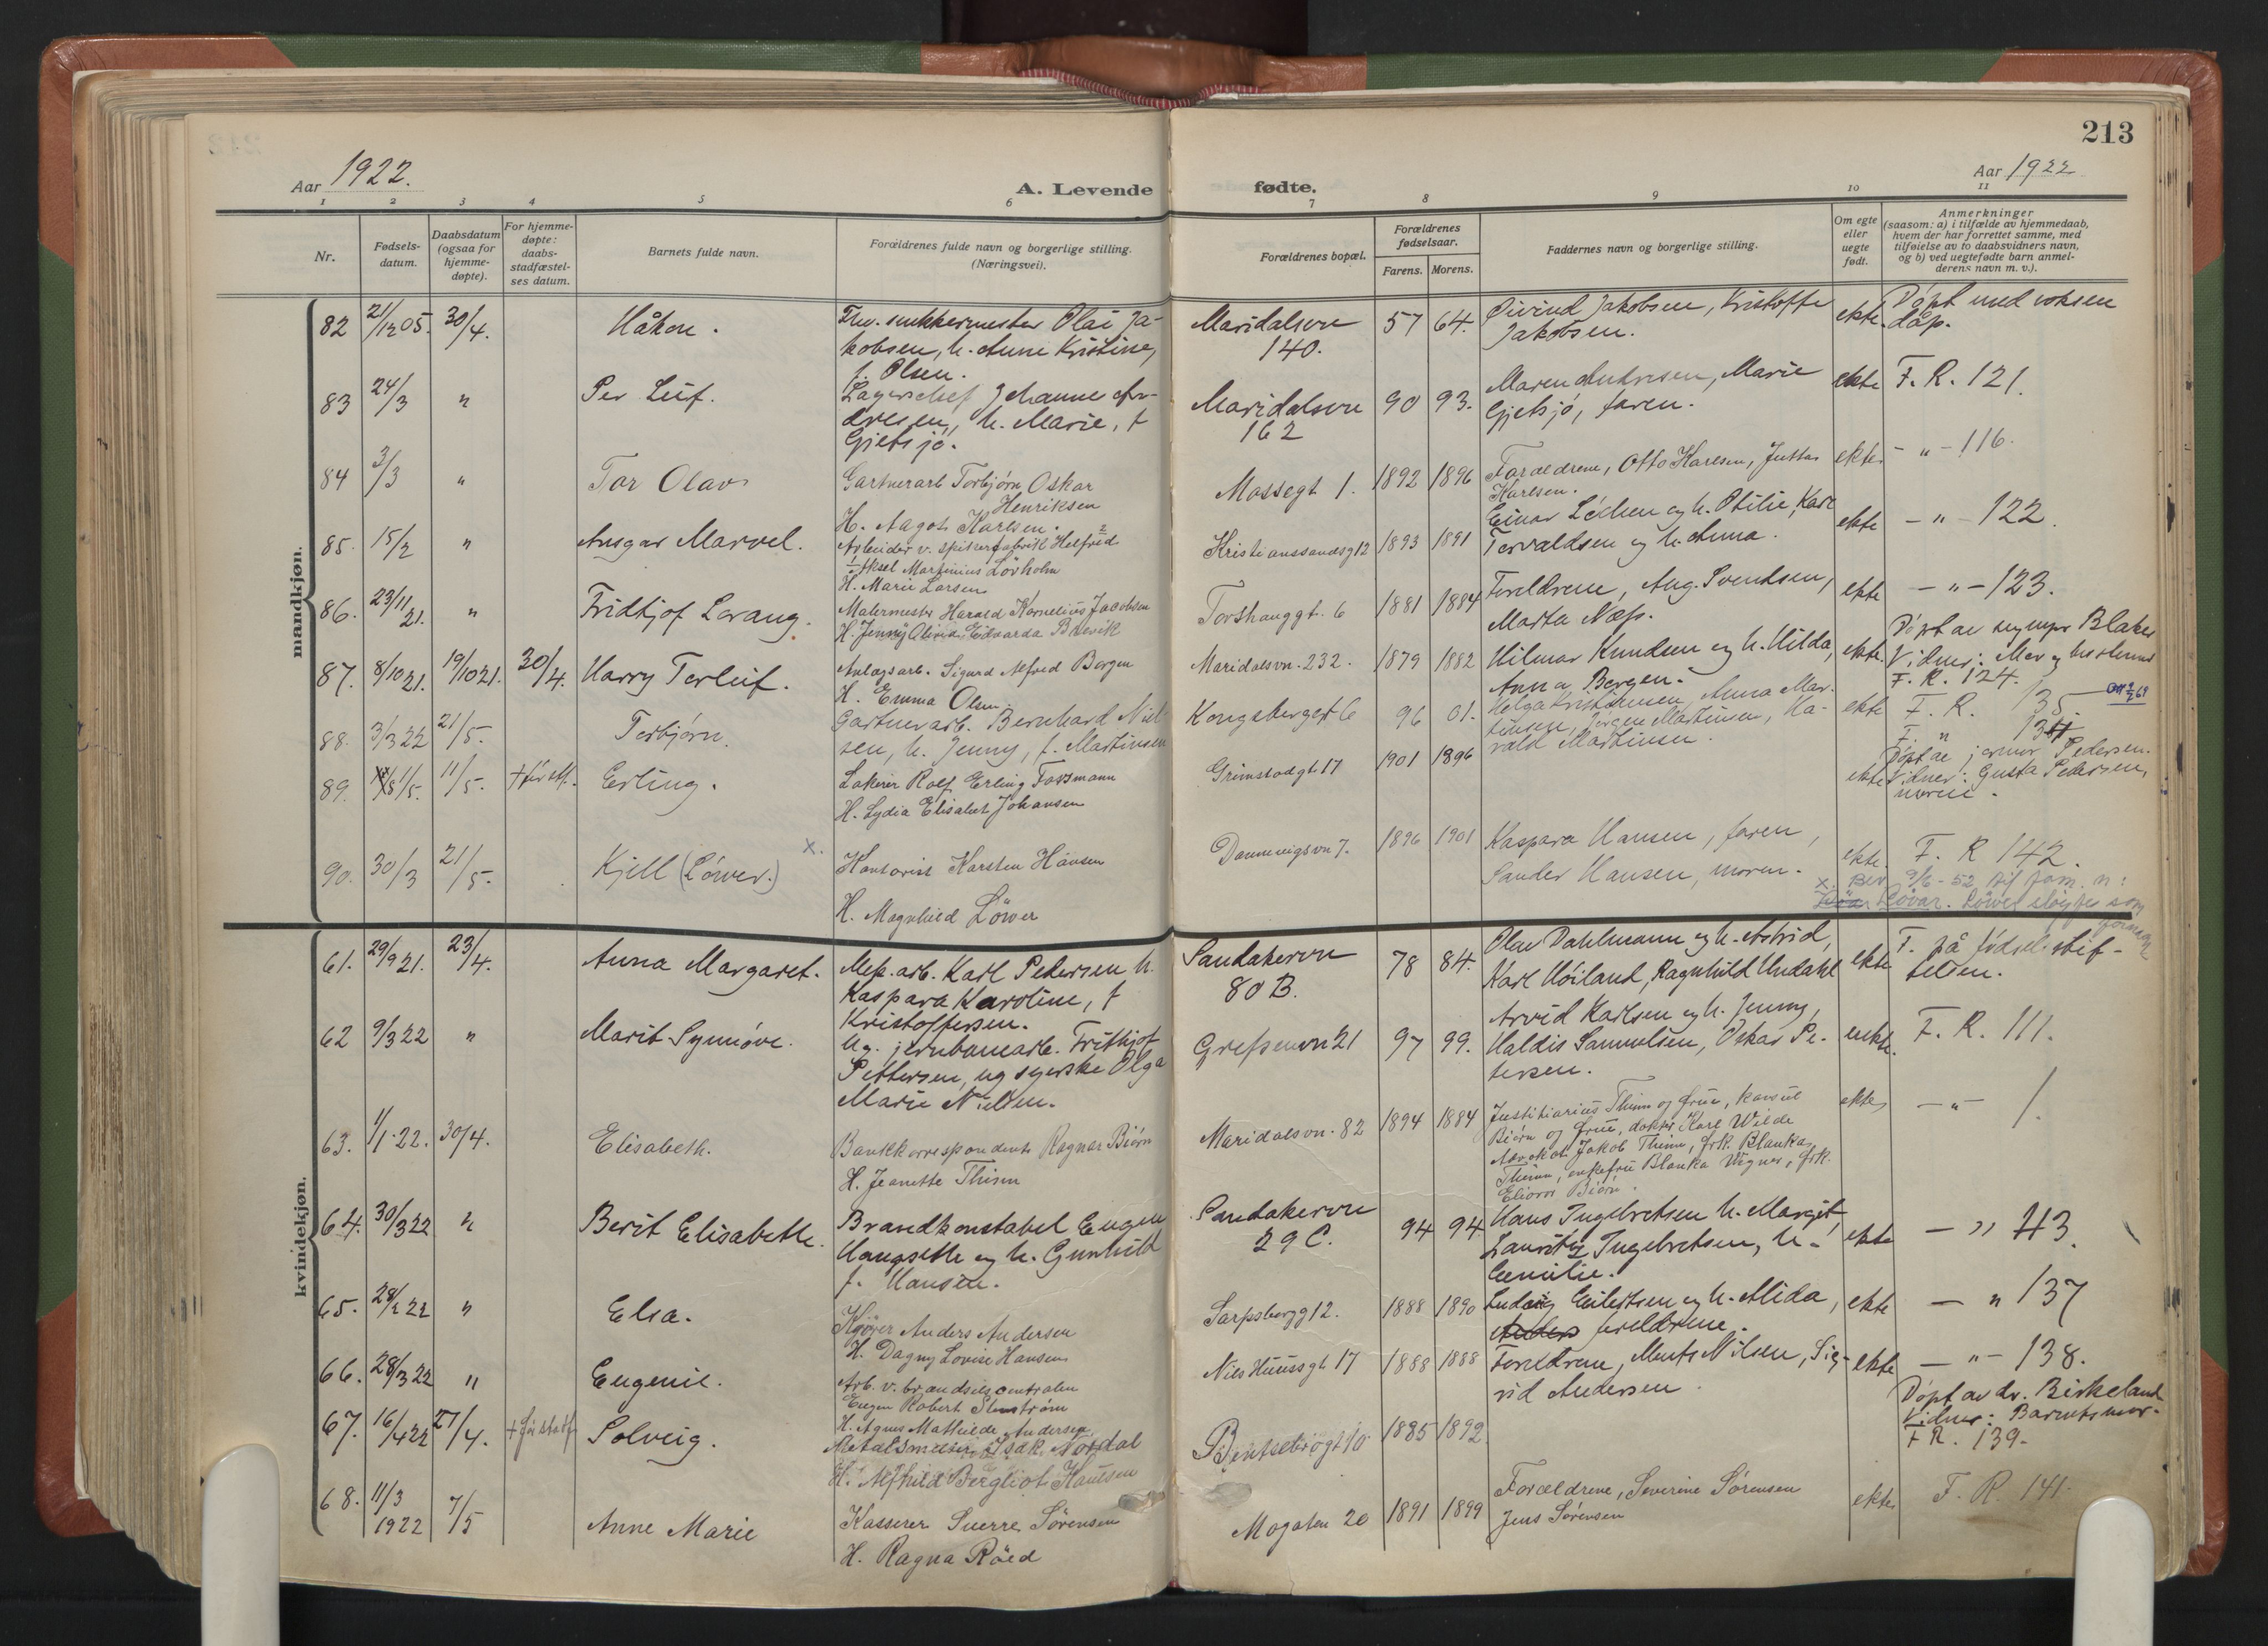 213
Aar 1922.
A. Levende
fødte.
Aar 1922
1 2 3 4 5 6 7 8 9 10 11
Nr.
Fødsels-
datum.
Daabsdatum
(ogsaa for
hjemme-
døpte).
For hjemme-
døpte:
daabs-
stadfæstel-
ses datum.
Barnets fulde navn.
Forældrenes fulde navn og borgerlige stilling.
(Næringsvei).
Forældrenes bopæl.
Forældrenes
fødselsaar.
Farens. Morens.
Faddernes navn og borgerlige stilling.
Om egte
eller
uegte
født.
Anmerkninger
(saasom: a) i tilfælde av hjemmedaab,
hvem der har forrettet samme, med
tilføielse av to daabsvidners navn,
og b) ved uegtefødte barn anmel-
derens navn m. v.).
mandkjøn.
82 21/12 05. 30/4. Håkon. Olai Ja-
kobsen, h. Anne Kristine,
f. Olsen.
Maridalsvn
140.
57 64. Øivind Jakobsen, Kristoffe
Jakobsen.
ekte. Döpt med voksen
dåp.
83 24/3 " Per Leif. Lagerchef Johannes An-
dresen, h. Marie, f
Gjetsjö.
Maridalsvn
162
90 93. Maren Andresen, Marie
Gjetsjö, faren.
ekte F. R. 121.
84 3/3 " Tor Olav Gartnerarb Torbjørn Oskar
Henriksen
H. Aagot Karlsen.
Mossegt 1. 1892 1896 Foreldrene, Otto Karlsen, Justas
Karlsen.
ekte - " - 116.
85. 15/2 " Ansgar Marvel. Arbeider v. spikerfabrik Helfred
Aksel Martinius Løvholm
H. Marie Larsen
Kristianssandsg 12 1893 1891 Einar Löchen og h. Otilie, Karl
Torvaldsen og h. Anna.
ekte - " - 122.
86. 23/11 21. " Fridtjof Lorang. Malermester Harald Kornelius Jacobsen
H. Jenny Olivia Edvarda Brevik
Torshauggt. 6 1881 1884 Foreldrene, Aug. Svendsen,
Marta Næss.
ekte - " - 123.
87. 8/10 21. 19/10 21. 30/4. Harry Torleif. Anlægsarb. Sigurd Alfred Bergen
H. Emma Olsen
Maridalsvn. 232. 1879 1882 Hilmar Knudsen og h. Hilda,
Anna Bergen.
ekte. Döpt av Blaker
Vidner: Mor og
F. R. 124.
88. 3/3 22 21/5. Torbjørn. Gartnerarb. Bernhard Niel-
sen, h. Jenny, f. Martinsen
Kongsberggt 6 96 01. Helga Kristiansen, Anna Mar-
tinsen, Jørgen Martinsen, Ha-
rald Martinsen.
ekte F. R. 135.
89. 1/5. 11/5. + før stf. Erling. Lakerer Rolf Erling Fossmann
H. Lydia Elisabet Johansen
Grimstadgt. 17 1901 1896
ekte F. " 134
Döpt av jormor Pedersen.
Vidner: Gusta Pedersen,
moren.
90. 30/3 21/5. Kjell (Löwer.) x. Kontorist Karsten Hansen
H. Magnhild Löwer
Dannevigsvn 7. 1896 1901 Kaspara Hansen, faren,
Sander Hansen, moren.
ekte. F. R 142.
x. Bev 9/6 - 52 till fam. n:
Løvar. Löwer sløyfes som
fornavn
kvindekjøn.
61. 29/9 21. 23/4. Anna Margaret. Mek. arb. Karl Pedersen h.
Kaspara Karoline, f
Kristoffersen.
Sandakervn
80 B.
78 84. Olav Dahlmann og h. Astrid,
Karl Höiland, Ragnhild Undahl
ekte F. på fødselsstif-
telsen.
62 9/3 22 " Marit Synnöve. Ug. jernbanearb. Fritjof
Pettersen, ug syerske Olga
Marie Nielsen.
Grefsenvn 21 97 99. Arvid Karlsen og h. Jenny,
Haldis Samuelsen, Oskar Pe-
tersen.
uekte. F. R. 111.
63. 1/1. 22. 30/4. Elisabeth. Bankkorrespondent Ragnar Biørn
H. Jeanette Thinn
Maridalsvn. 82 1894 1884 Justitiarius Thinn og frue, konsul
Biørn og frue, doktor Karl Wilde
Advokat Jakob Thinn, frk. Blanka
Thinn, enkefru Blanka Wigner, frk.
Elionor Biørn.
ekte - " - 1.
64. 30/3 22 " Berit Elisabeth. Brandkonstabel Eugen
Haugseth og h. Gunhild
f. Hansen.
Sandakervn
29 C.
94 94. Hans Ingebretsen h. Margit,
Lauritz Ingebretsen, h.
Emilie.
ekte - " 43.
65. 28/2 22 " Elsa. Kjører Anders Andersen
H. Dagny Lovise Hansen
Sarpsborgg 12. 1888 1890 Ludvig Eilertsen og h. Alida,
Anders foreldrene.
ekte - " 137
66. 28/3 22 " Eugenie. Arb. v. brændselscentralen
Eugen Robert Stenstrøm
H. Agnes Mathilde Andersen
Niels Huusgt. 17 1888 1888 Foreldrene, Ments Nilsen, Sig-
rid Andersen.
ekte - " - 138.
67. 16/4 22 21/4. + før stadf Solveig. Metalsmelter Isak Nordal
H. Alfhild Bergliot Knutsen
Bentsebrogt 10 1885 1892
Döpt av dr. Birkeland
Vidner: Barnets mor.
F R. 139.
68. 11/3 1922 7/5 Anne Marie Kasserer Sverre Sørensen
H. Ragna Röed
Mogaten 20 1891 1899 Forældrene, Severine Sørensen
Jens Sørensen
ekte F. R. 141.